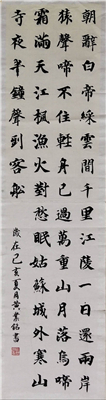 朝辭白帝綵雲間千里江陵一日還兩岸
猿聲啼不住輕舟已過萬重山月落烏啼
霜滿天江楓漁火對愁眠姑蘇城外寒山
寺夜半鐘聲到客舩
歲在己亥夏月黃業銘書